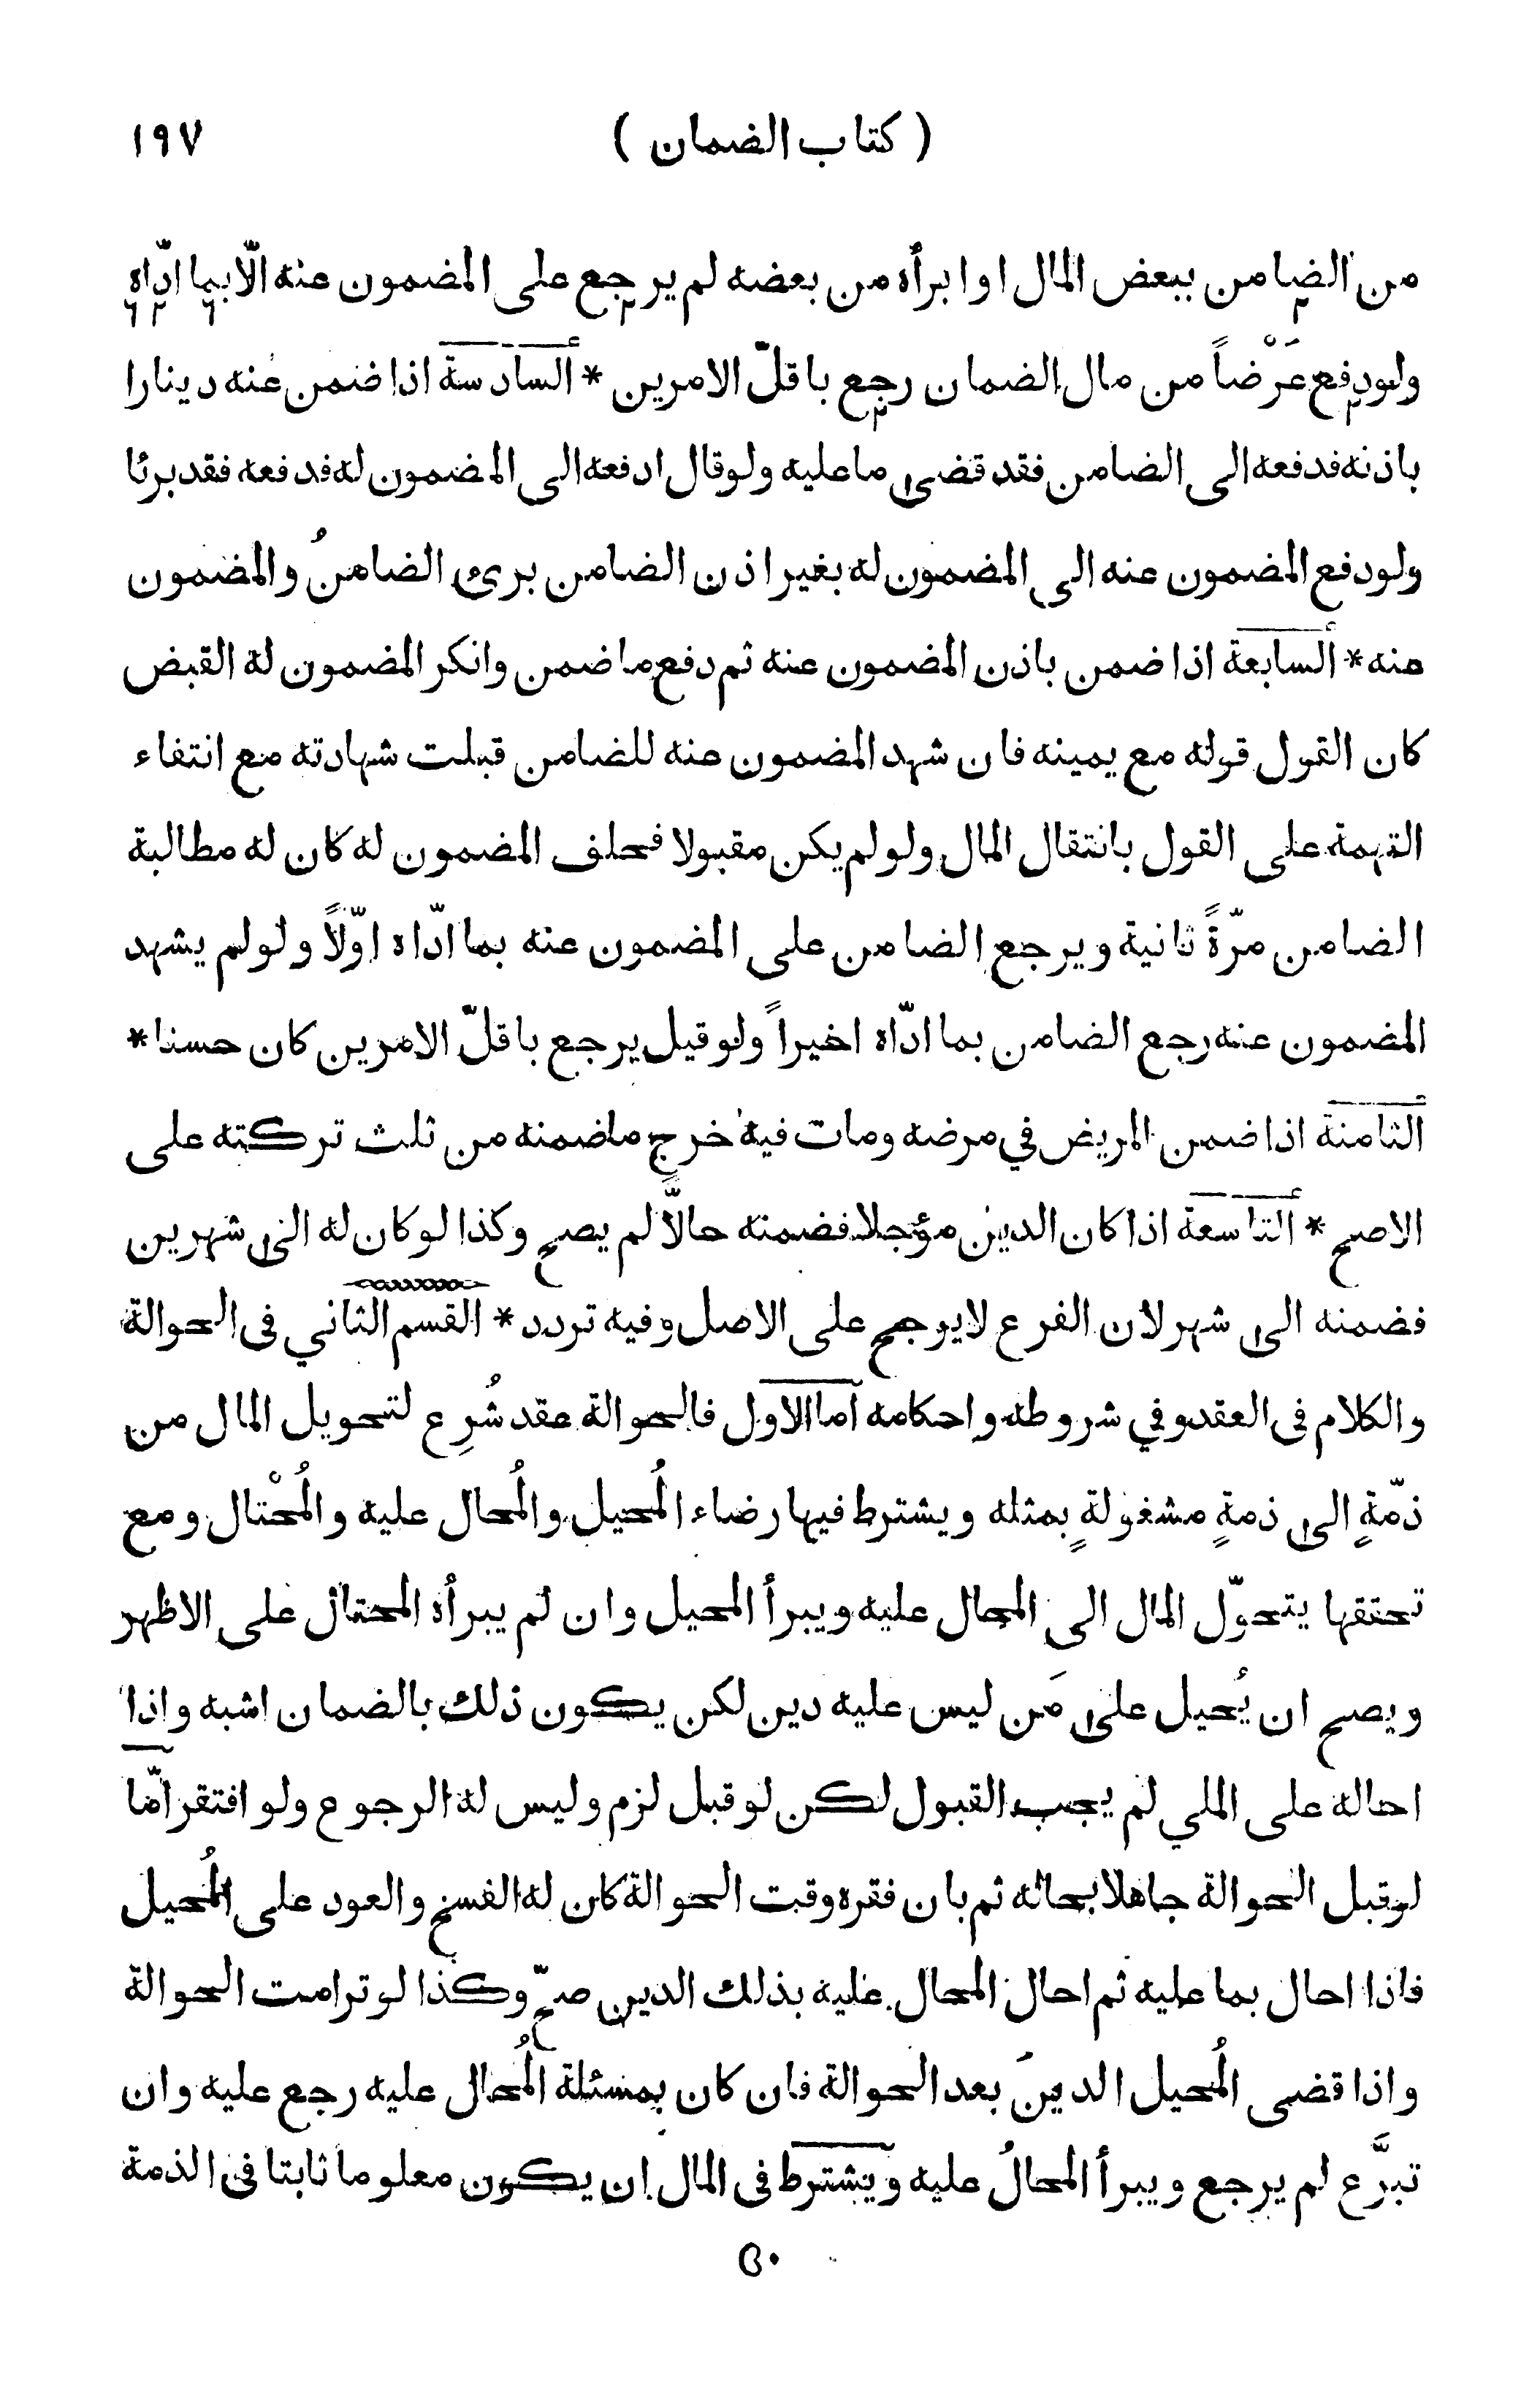 ( كتاب الضمان ) ١٩٧
من الضامن ببعض المال او ابرأه من بعضه لم يرجع على المضمون عنه الّا بما ادّاه
ولو دفع عَرْضاً من مال الضمان رجع باقلّ الامرين * السادسة اذا ضمن عنه دينارا
باذنه فدفعه الى الضامن فقد قضى ما عليه ولو قال ادفعه الى المضمون له فدفعه فقد برئا
ولو دفع المضمون عنه الى المضمون له بغير اذن الضامن برئ الضامنُ والمضمون
عنه * السابعة اذا ضمن باذن المضمون عنه ثم دفع ما ضمن وانكر المضمون له القبض
كان القول قوله مع يمينه فان شهد المضمون عنه للضامن قبلت شهادته مع انتفاء
التهمة على القول بانتقال المال ولو لم يكن مقبولا فحلف المضمون له كان له مطالبة
الضامن مرّةً ثانية ويرجع الضامن على المضمون عنه بما ادّاه اوّلاً ولو لم يشهد
المضمون عنه رجع الضامن بما ادّاه اخيراً ولو قيل يرجع باقلّ الامرين كان حسنا *
الثامنة اذا ضمن المريض في مرضه ومات فيه خرج ما ضمنه من ثلث تركته على
الاصح * التاسعة اذا كان الدين مؤجلا فضمنه حالاًّ لم يصح وكذا لو كان له الى شهرين
فضمنه الى شهر لان الفرع لا يرجح على الاصل وفيه تردد * القسم الثاني فى الحوالة
والكلام فى العقد وفي شروطه واحكامه اما الاول فالحوالة عقد شُرِع لتحويل المال من
ذمّةٍ الى ذمةٍ مشغولةٍ بمثله ويشترط فيها رضاء المُحيل والمُحال عليه والمُحْتال ومع
تحققها يتحوّل المال الى المحال عليه ويبرأ المحيل وان لم يبرأه المحتال على الاظهر
ويصح ان يُحيل على مَن ليس عليه دين لكن يكون ذلك بالضمان اشبه واذا
احاله على الملي لم يجب القبول لكن لو قبل لزم وليس له الرجوع ولو افتقر امّا
لو قبل الحوالة جاهلا بحاله ثم بان فقره وقت الحوالة كان له الفسخ والعود على المُحيل
فاذا احال بما عليه ثم احال المحال عليه بذلك الدين صحّ وكذا لو ترامت الحوالة
واذا قضى المُحيل الدينَ بعد الحوالة فان كان بمسئلة المُحال عليه رجع عليه وان
تبرَّع لم يرجع ويبرأ المحالُ عليه ويشترط فى المال ان يكون معلوما ثابتا فى الذمة